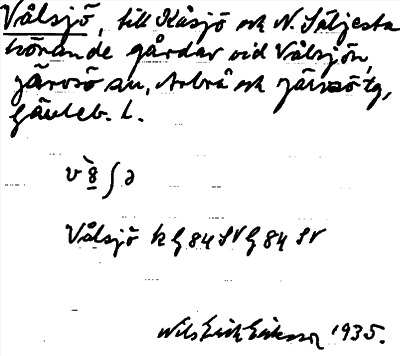 Vålsjö, till Kåsjö och N. Säljesta
hörande gårdar vid Vålsjön,
Järvsö sn, Arbrå och Järvsö tg,
Gävleb. l.
Vålsjö k G 84 SV G 84 SV
Nils Erik Eriksson 1935.